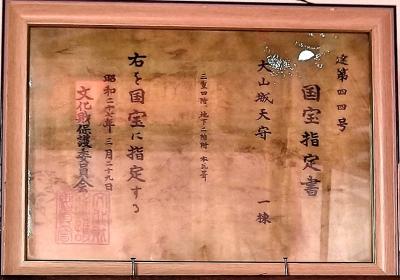 建第四四号
国宝指定書
犬山城天守 一棟
三重四階、地下二階附、本瓦葺
右を国宝に指定する
昭和二十七年三月二十九日
文化財保護委員会